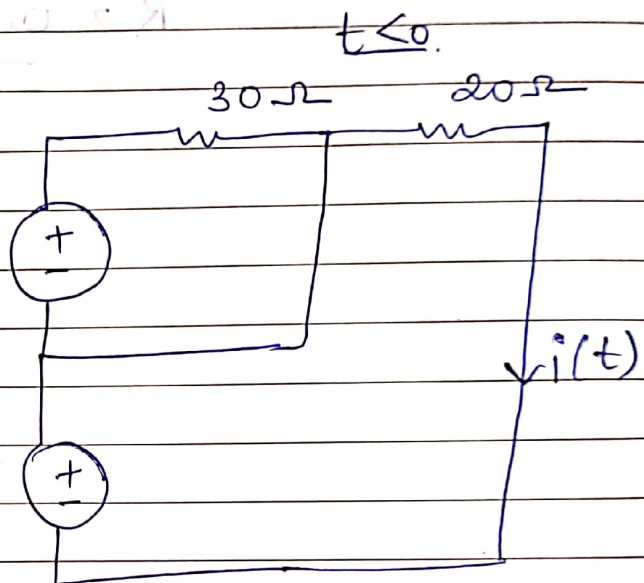 t<0.
30Ω 20Ω
+
-
i(t)
+
-